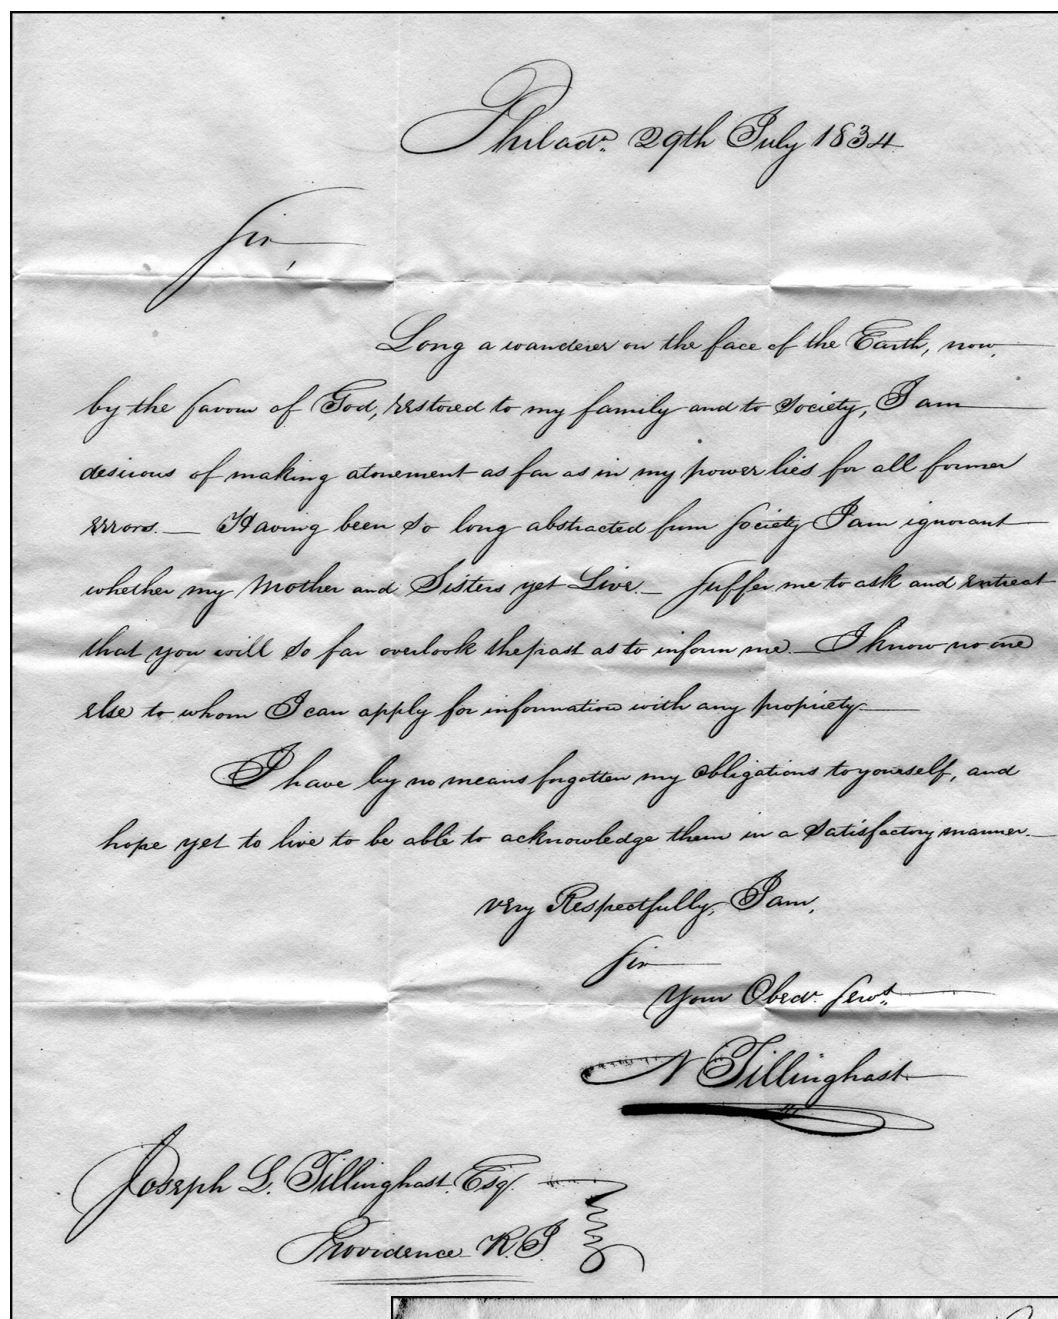 Philada. 29th July 1834
Sir,
Long a wanderer on the face of the Earth, now,
by the favour of God, restored to my family and to Society, I am
desirous of making atonement as far as in my power lies for all former
errors. — Having been so long abstracted from Society I am ignorant
whether my Mother and Sisters yet Live. — Suffer me to ask and entreat
that you will so far overlook the past as to inform me. — I know no one
else to whom I can apply for information with any propriety. —
I have by no means forgotten my obligations to yourself, and
hope yet to live to be able to acknowledge them in a satisfactory manner. —
very Respectfully, I am,
Sir
Your Obedt. Servt.
N Tillinghast
Joseph L. Tillinghast, Esq.
Providence R.I